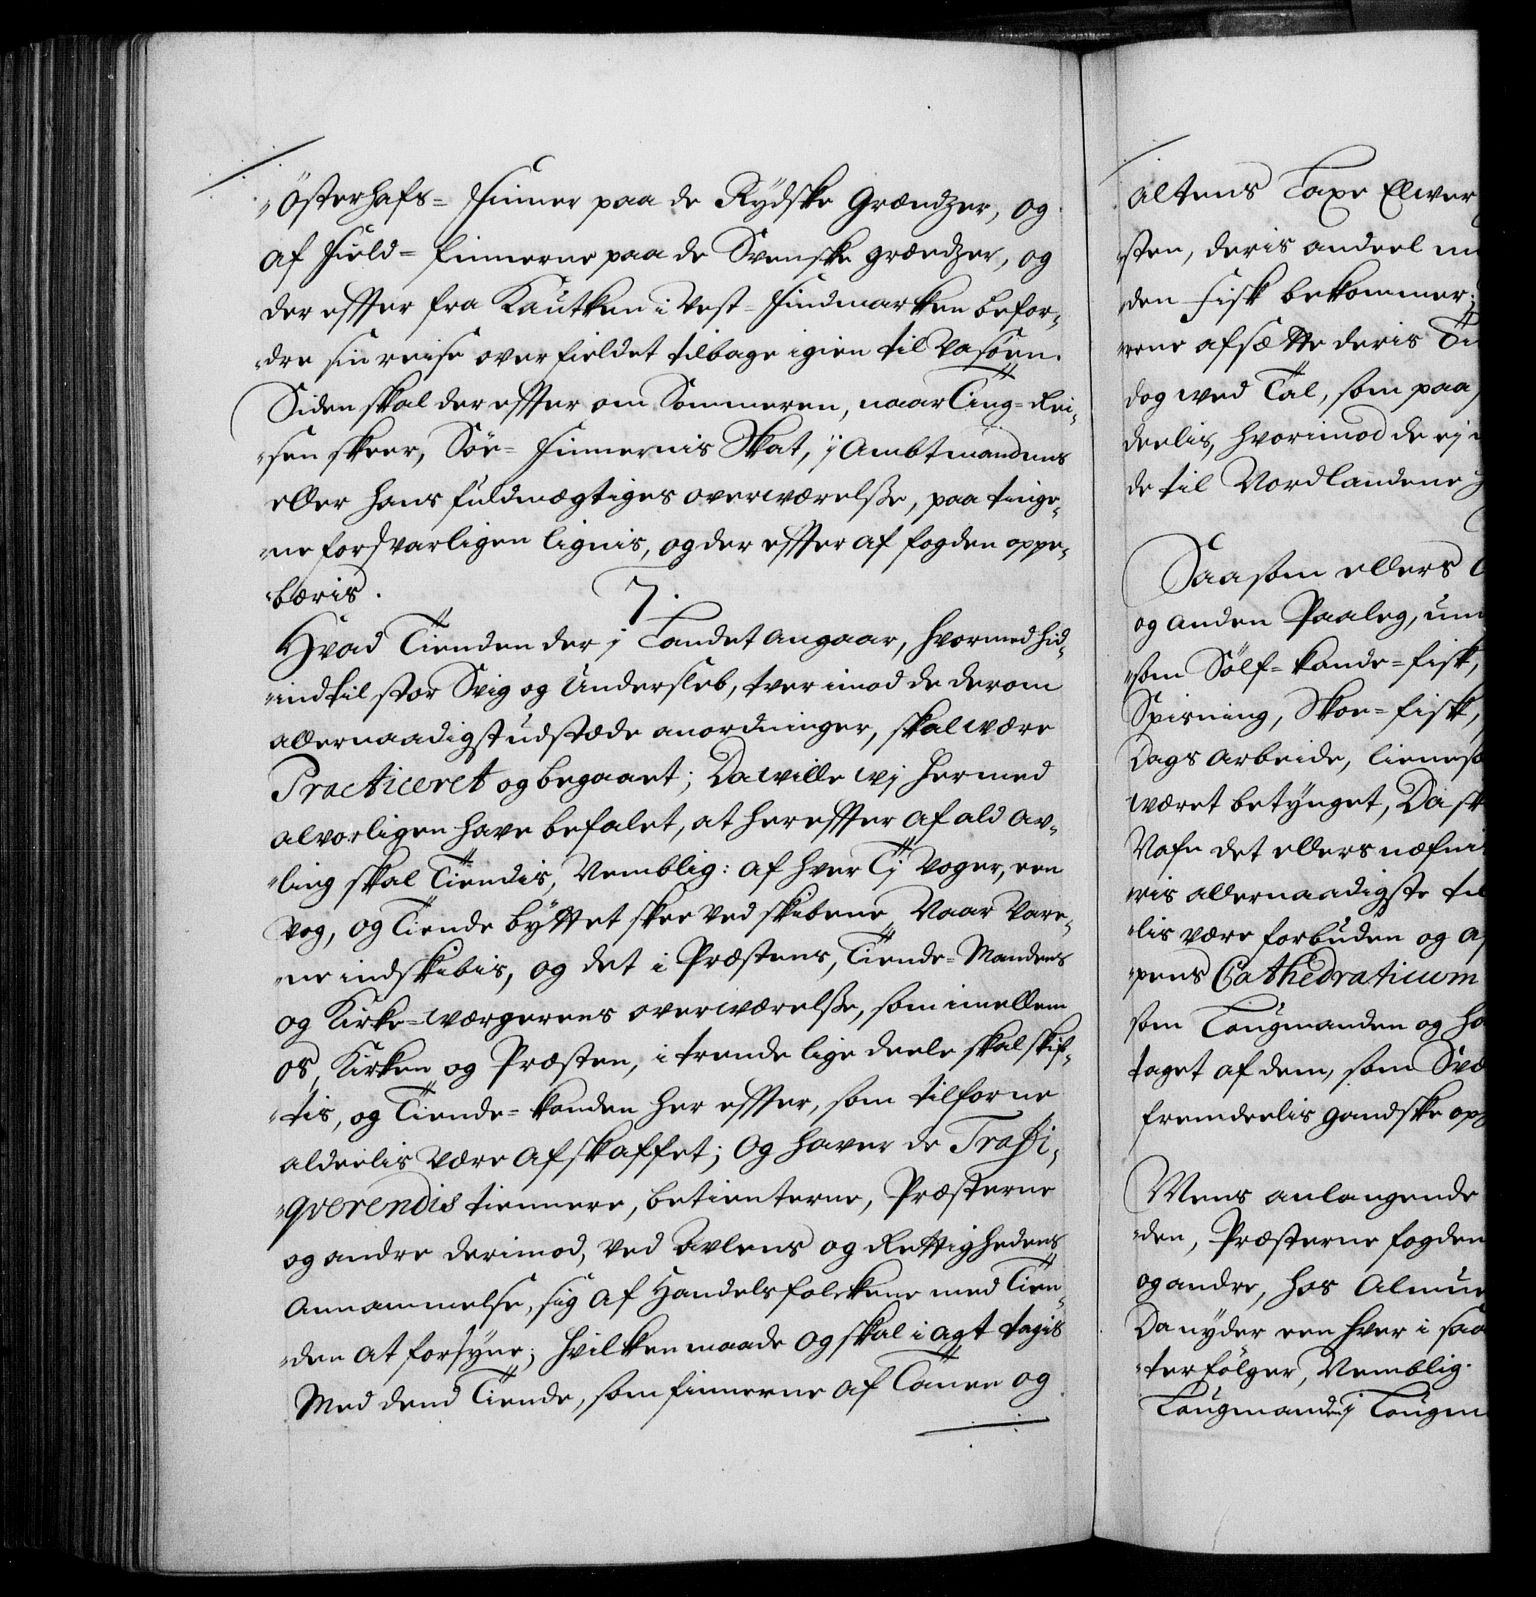 Østerhafs= Finner paa de Rydske Grændzer, og
af Field= finnerne paa de Svenske grændzer, og
der effter fra Kautken i Vest= Findmarken befor¬
dre sin reise over fieldet tilbage igien til Vasöen.
Siden skal der effter om Sommeren, naar Ting= Rei¬
sen skeer, Söe= Finnernis Skat, i Ambtmandens
eller hans fuldmægtiges overværelsse, paa tinge¬
ne forsvarligen lignis, og der effter af fogden oppe¬
bæris.
7.
Hvad Tienden der i Landet angaar, hvormed hid¬
indtil stor Svig og Undersleb, tver imod de derom
allernaadigst udstæde anordninger, skal være
Practiceret og begaaet; Da wille wj hermed
alvorligen have befalet, at hereffter af ald av¬
ling skal Tiendis, Nemblig: af hver Tj Voger, een
Vog, og Tiende byttet skee ved skibene, Naar Vare¬
ne indskibis, og det i Præstens, Tiende= Mandens
og Kirke= wærgerens overværelsse, som imellem
os, Kirken og Præsten, i trende lige deele skal skif¬
tis, og Tiende= konden her effter, som tilforne
aldeelis være afskaffet; Og haver de Traffi¬
qverendis tiennere, betienterne, Præsterne
og andre derimod, ved Avlens og Rettighedens
Annammelse, sig af Handelsfolckene med Tien¬
den at forsyne; hvilken maade og skal i agt tagis
Med dend Tiende, som finnerne af Tanen og
Altens Taxe Elwer
sten, deris andeel
den Fisk bekommer;
rene afsætte deris
dog wed Tal, som paa
deelis, hvorimod de ej
de til Nordlandene
Saasom ellers
og anden Paaleg,
som Sölf= kande= fisk,
Spisning, Skoe= fisk,
Dags Arbeide,
været betynget, Da
Nafn det ellers næfnis
ris allernaadigste
lis være forbuden og
pens Cathedraticum
som Laugmanden og
taget af dem, som
fremdeelis gandske
Mens anlangende
den, Præsterne fogden
og andre, hos
Da nyder een hver i
terfölger, Nemblig.
Laugmanden i